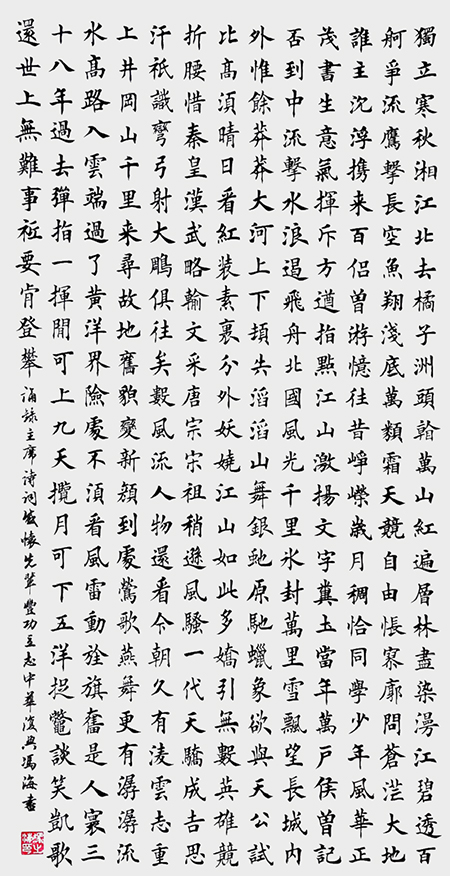 獨立寒秋湘江北去橘子洲頭看萬山紅遍層林盡染漫江碧透百
舸爭流鷹擊長空魚翔淺底萬類霜天競自由悵寥廓問蒼茫大地
誰主沈浮攜来百侣曾游憶往昔崢嶸歲月稠恰同學少年風華正
茂書生意氣揮斥方遒指點江山激揚文字糞土當年萬戶侯曾記
否到中流擊水浪遏飛舟北國風光千里氷封萬里雪飄望長城内
外惟餘莽莽大河上下頓失滔滔山舞銀蛇原馳蠟象欲與天公試
比高須晴日看紅装素裹分外妖嬈江山如此多嬌引無數英雄競
折腰惜秦皇漢武略輸文采唐宗宋祖稍遜風騷一代天驕成吉思
汗祗識彎弓射大鵰俱往矣數風流人物還看今朝久有凌雲志重
上井岡山千里来尋故地舊貌變新顔到處鶯歌燕舞更有潺潺流
水高路入雲端過了黄洋界險處不須看風雷動旌旗奮是人寰三
十八年過去彈指一揮間可上九天攬月可下五洋捉鼈談笑凱歌
還世上無難事祗要肯登攀 誦録主席詩詞感懷先輩豐功立志中華復興馮海書